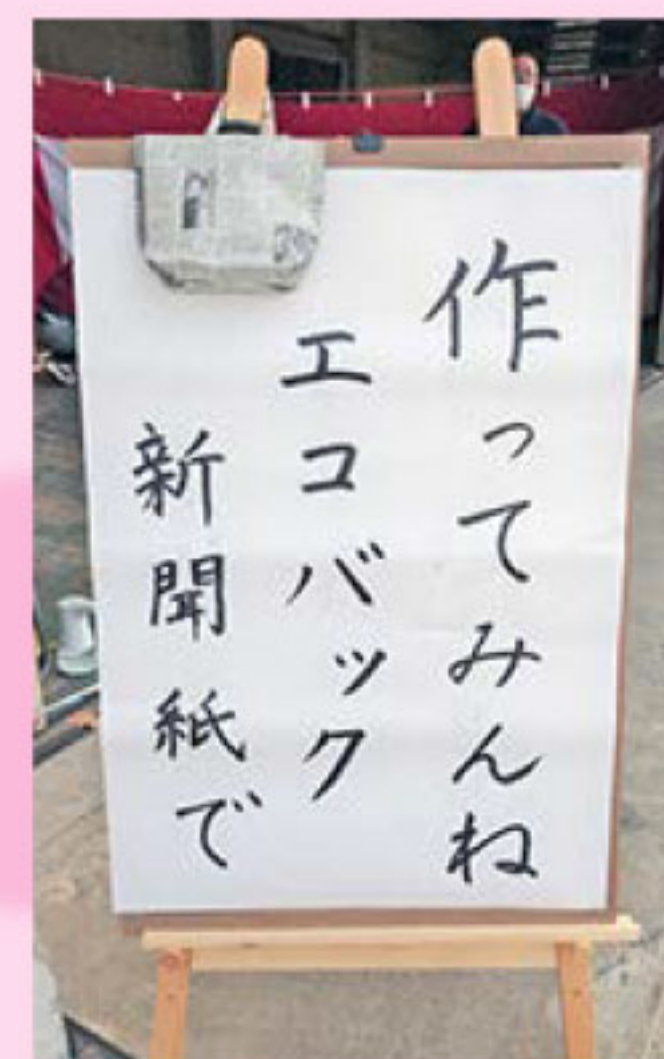 作ってみんね
エコバック
新聞紙で